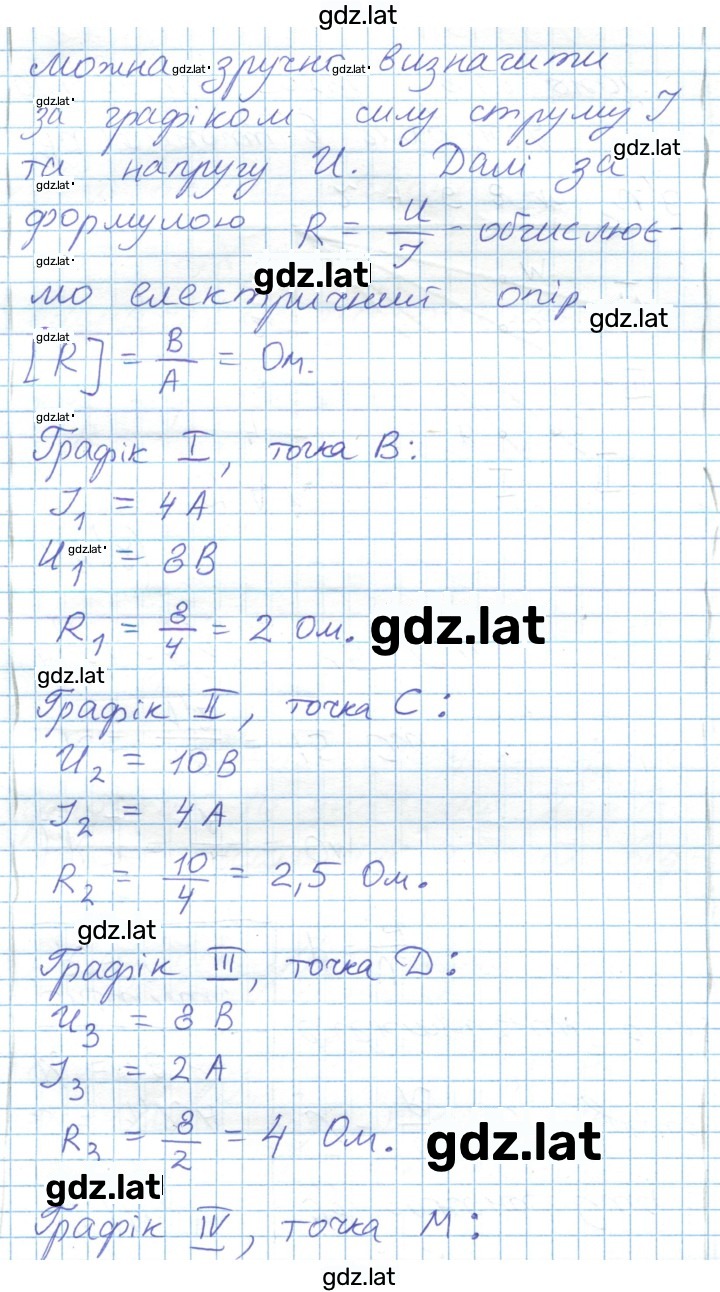 gdz.lat
можна gdz.lat зручно gdz.lat визначити
gdz.lat
за графіком силу струму I
та напругу U. Далі за gdz.lat
gdz.lat
формулою R = U/I - обчислює-
gdz.lat
gdz.lat
мо електричний опір.
gdz.lat
gdz.lat
[R] = В/А = Ом.
gdz.lat
Графік I, точка B:
I₁ = 4 А
U₁ gdz.lat = 8 В
R₁ = 8/4 = 2 Ом. gdz.lat
gdz.lat
Графік II, точка C:
U₂ = 10 В
I₂ = 4 А
R₂ = 10/4 = 2,5 Ом.
gdz.lat
Графік III, точка D:
U₃ = 8 В
I₃ = 2 А
R₃ = 8/2 = 4 Ом. gdz.lat
gdz.lat
Графік IV, точка M:
gdz.lat